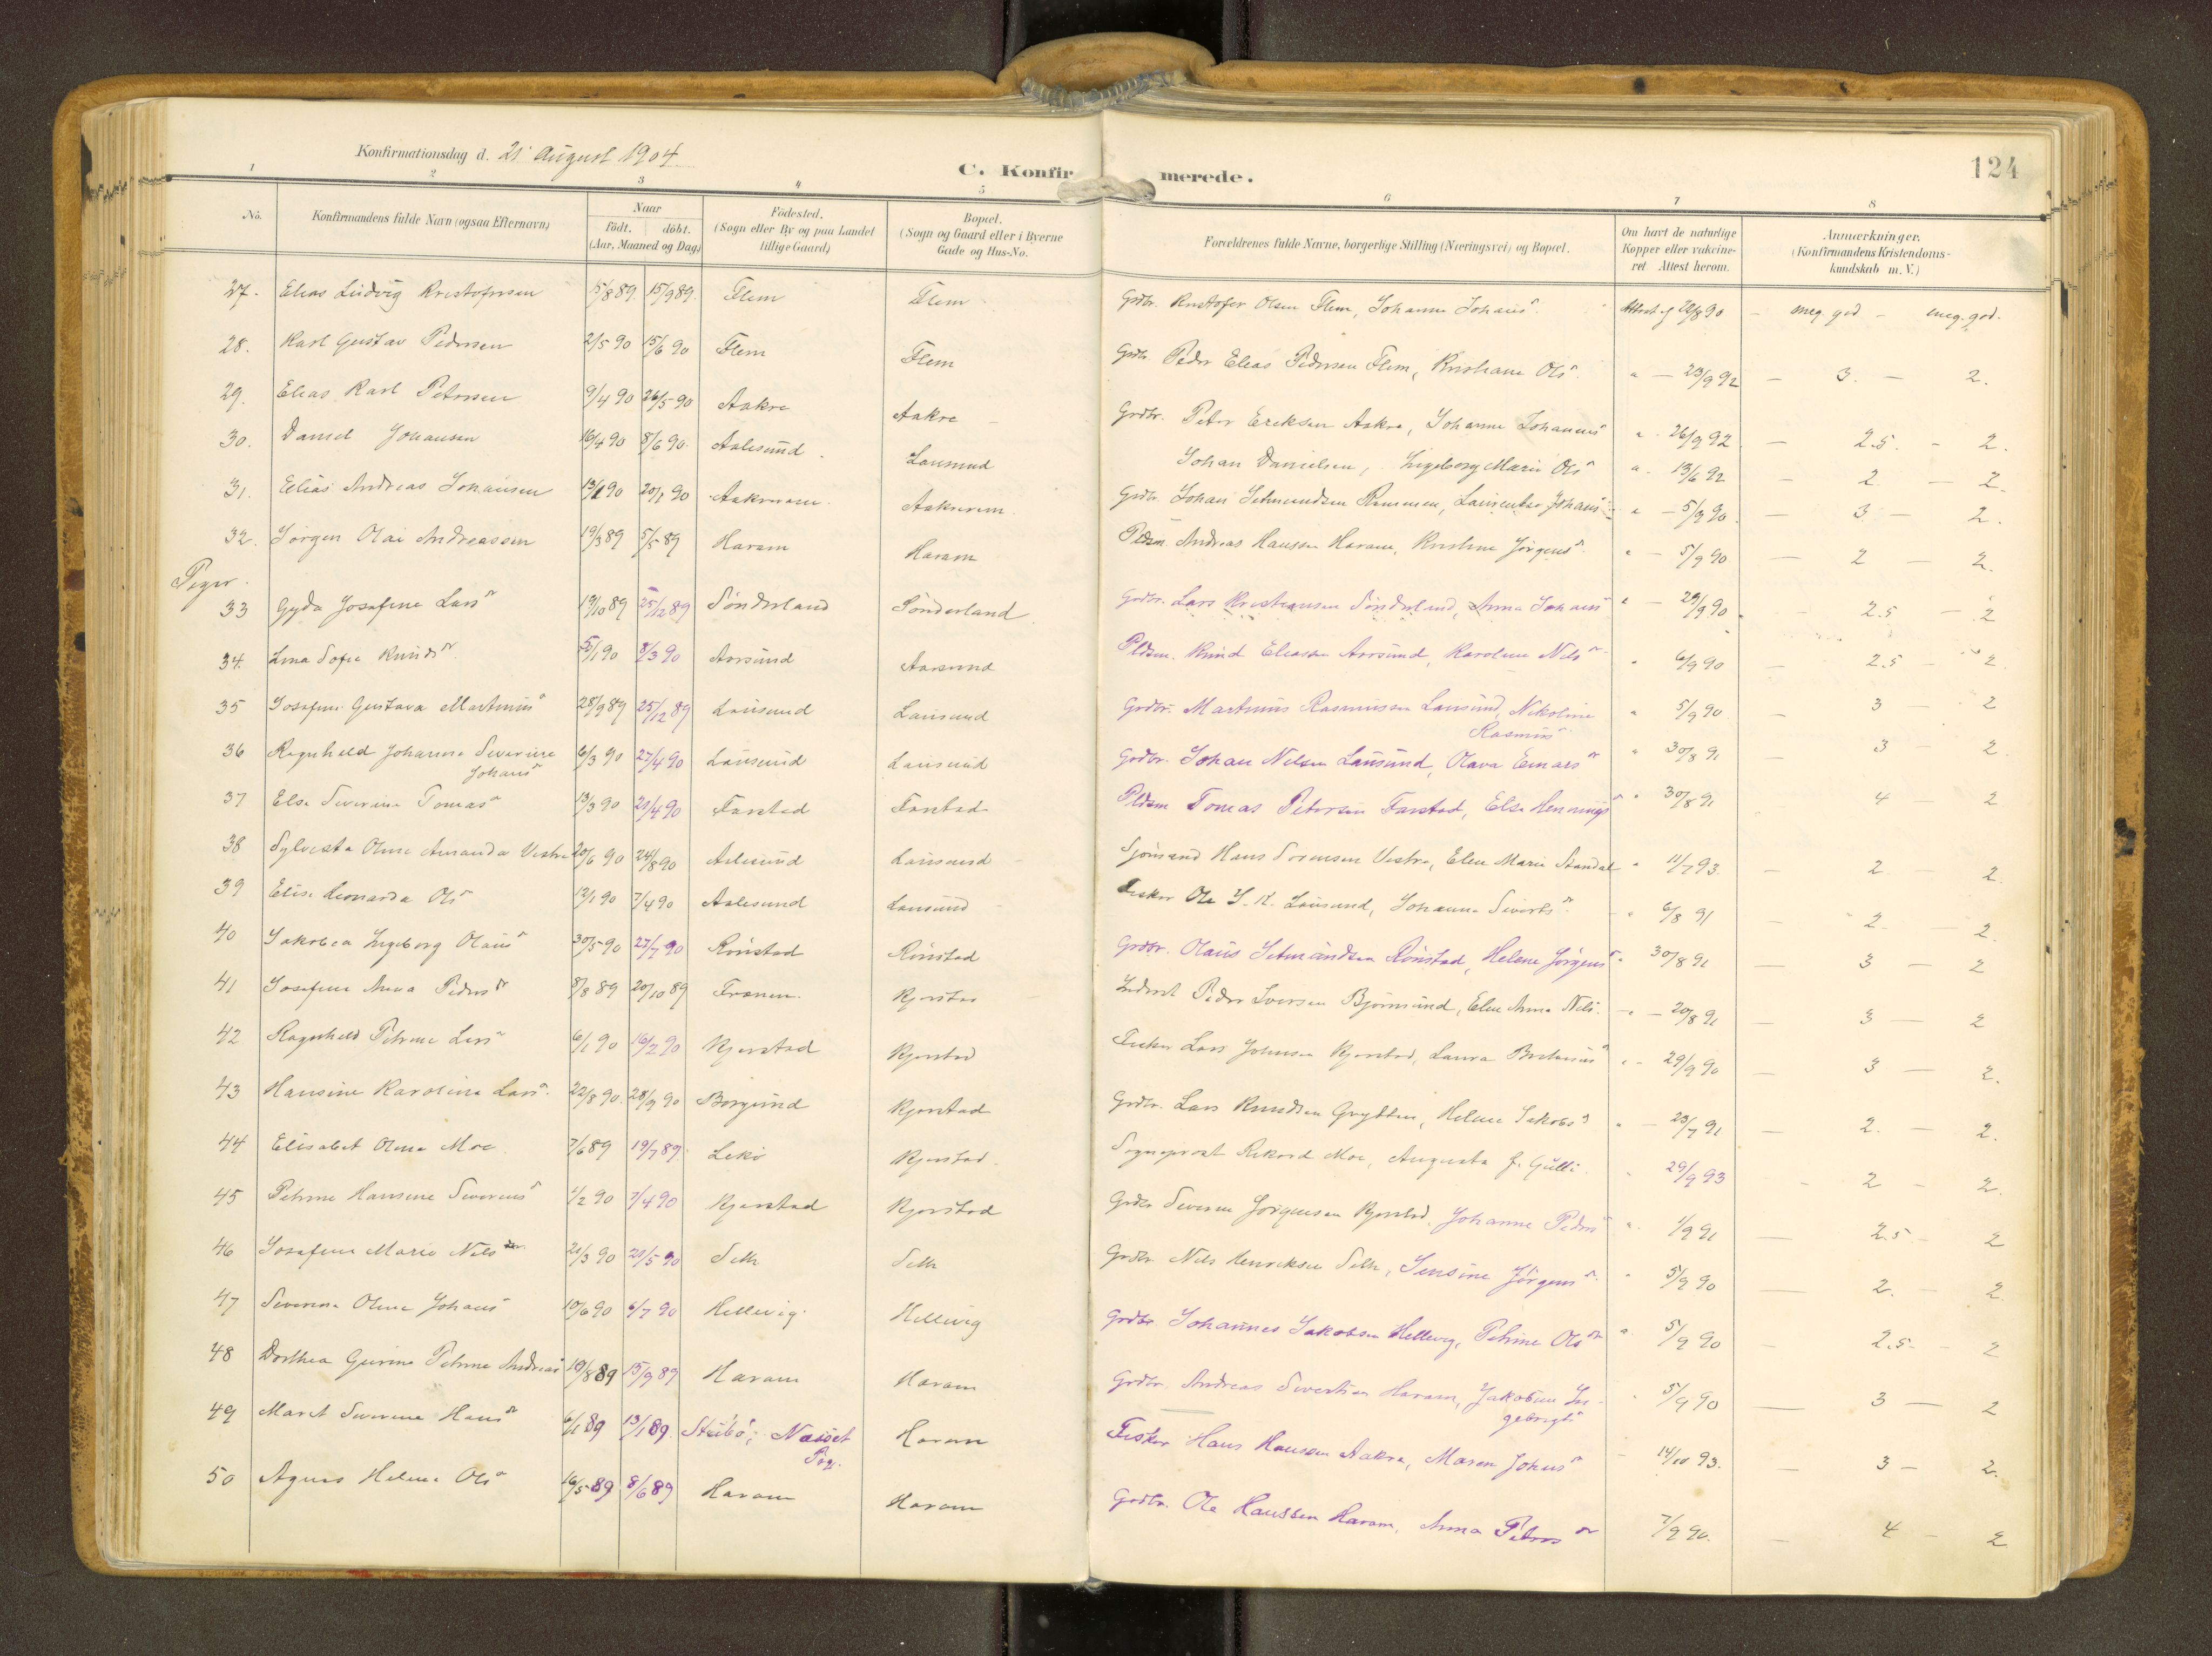 Konfirmationsdag d. 21 August 1904
C. Konfirmerede.
124
1 2 3 4 5 6 7 8
No. Konfirmandens fulde Navn (ogsaa Efternavn) Naar født. døbt. (Aar, Maaned og Dag) Födested. (Sogn eller By og paa Landet tillige Gaard) Bopæl. (Sogn og Gaard eller i Byerne Gade og Hus-No. Forældrenes fulde Navne, borgerlige Stilling (Næringsvei) og Bopæl. Om havt de naturlige Kopper eller vakcineret Attest herom. Anmærkninger. (Konfirmandens Kristendomskundskab m. V.)
27. Elias Ludvig Kristofersen 5/8 89. 15/9 89. Flem Flem Grdbr. Kristofer Olsen Flem, Johanne Johans Attest af 28/8 90 - meg. god - meg. god.
28. Karl Gustav Pedersen 2/5 90 15/6 90 Flem Flem Grdbr. Peder Elias Pedersen Flem, Kristiane Ols " - 23/9 92 - 3. - 2.
29. Elias Karl Petersen 9/4 90 26/5 90 Aakre Aakre Grdbr. Peter Eriksen Aakre, Johanne Johannes " - 26/9 92 - 2.5 - 2.
30. Daniel Johansen 16/4 90 8/6 90. Aalesund Lausund Johan Danielsen, Ingeborg Marie Ols " - 13/6 92 - 2 - 2.
31. Elias Andreas Johansen 13/1 90 20/1 90 Aakrevem Grdbr. Johan Johans " - 5/9 90 - 3 - 2.
32. Jørgen Olai Andreassen 19/3 89 5/5 89 Haram Haram Pldsm. Andreas Hansen Haram, Kristine Jørgens " - 5/9 90 - 2 - 2.
Piger.
33 Gyda Josefine Lars 19/10 89 25/12 89 Sönderland Sönderland Grdbr. Lars Kristiansen Sönderland, Anna Johans " - 29/9 90 - 2.5 - 2
34. Lina Sofie Knuds 5/1 90 8/3 90 Aarsund Aarsund Pldsm. Knud Eliassen Aarsund, Karoline Nils " 6/9 90 - 2.5 - 2
35 Josefine Gustava Martinus 28/9 89 25/12 89 Lausund Lausund Grdbr. Martinus Rasmussen Lausund, Nikoline Rasmus " 5/9 90 - 3 - 2
36 Ragnhild Johanne Severine Johans 6/3 90 27/4 90 Lausund Lausund Grdbr. Johan Nilsen Lausund, Olava Einars " 30/8 91 - 3 - 2
37 Else Severine Tomas 13/3 90 21/4 90 Farstad Farstad Pldsm Tomas Petersen Farstad, Else Hennings " 30/8 91 4 2
38 Sylvesta Oline Amanda Vestre 20/6 90 24/8 90 Aalesund Lausund Sjömand Hans Sorensen Vestre, Elen Marie Standal " 11/7 93. - 2 - 2
39 Elise Leonarda Ols 12/1 90 7/4 90 Aalesund Lausund Fisker Ole J. K. Lausund, Johanne Siverts " 6/8 91 - 2 - 2.
40 Jakobea Ingeborg Olaus 30/5 90 27/7 90 Rönstad Rönstad Grdbr. Olaus Rönstad, Helene Jörgens " 30/8 91 - 3 - 2
41 Josefine Anna Peders 8/8 89 20/10 89 Frænen Kjerstad Peder Iversen Björnsund, Elen Anna Nils. " - 20/8 91 - 3 - 2
42 Ragnhild Petrine Lars 6/1 90 16/2 90 Kjerstad Kjerstad Fisker Lars Johnsen Kjerstad, Laura " - 29/9 90 - 3 - 2.
43 Hansine Karoline Lars. 22/8 90. 28/9 90 Borgund Kjerstad Grdbr. Lars Knudsen Grytten, Helene Jakobs " - 23/7 91 - 2. - 2.
44 Elisabet Olena Moe 7/6 89 19/7 89. Lekö Kjerstad Sogneprest Rikard Moe, Augusta f. Gulli. " 29/9 93 - 2 - 2.
45 Petrine Hansine Severins 1/2 90 7/4 90 Kjerstad Kjerstad Grdbr Severin Jörgensen Kjerstad, Johanne Peders " 1/9 91 - 2.5 - 2
46 Josefine Marie Nils 21/3 90 21/5 90 Grdbr. Nils Henriksen, Jensine Jörgens " 5/9 90 - 2. - 2
47 Severine Oline Johans 10/6 90 6/7 90 Hellevig Hellevig Grdbr Johannes Jakobsen Hellevig, Petrine Ols " 5/9 90 - 2.5 - 2
48 Dorthea Gurine Petrine Andreas 19/8 89 15/9 89 Haram Haram Grdbr. Andreas Sivertsen Haram, Jakobine Ingebrigts " 5/9 90 - 3 - 2
49 Marit Severine Hans 6/1 89 13/1 89. Stubö; Næsset Pgr. Haram Fisker Hans Hansen Aakre, Maren Johns - 14/10 93. - 3 - 2.
50 Agnes Helene Ols 16/5 89 8/6 89 Haram Haram Grdbr. Ole Hanssen Haram, Anna Peters 7/9 90. - 4 - 2